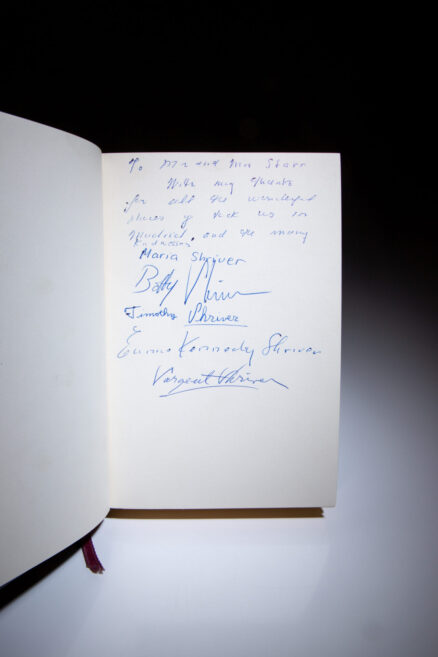 To Mr and Mrs Starr
With my thanks
for all the wonderful
places you took us in
Madrid, and the many
kindnesses.
Maria Shriver
Bobby Shriver
Timothy Shriver
Eunice Kennedy Shriver
Sargent Shriver